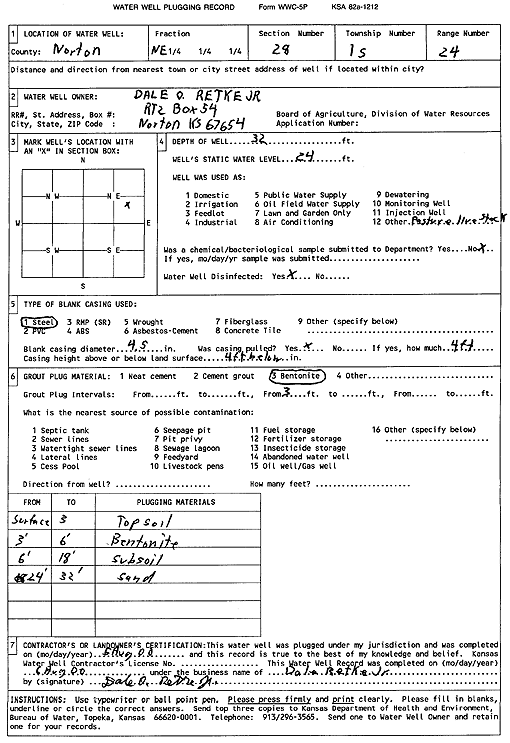 WATER WELL PLUGGING RECORD Form WWC-5P KSA 82a-1212
1 LOCATION OF WATER WELL: Fraction Section Number Township Number Range Number
County: Norton NE1/4 1/4 1/4 28 1s 24
Distance and direction from nearest town or city street address of well if located within city?
2 WATER WELL OWNER: DALE O. RETKE JR
RR#, St. Address, Box #: RT2 Box 54 Board of Agriculture, Division of Water Resources
City, State, ZIP Code : Norton KS 67654 Application Number:
3 MARK WELL'S LOCATION WITH AN "X" IN SECTION BOX:
N
N W N E
X
W E
S W S E
S
4 DEPTH OF WELL....32....ft.
WELL'S STATIC WATER LEVEL...24...ft.
WELL WAS USED AS:
1 Domestic 5 Public Water Supply 9 Dewatering
2 Irrigation 6 Oil Field Water Supply 10 Monitoring Well
3 Feedlot 7 Lawn and Garden Only 11 Injection Well
4 Industrial 8 Air Conditioning 12 Other.Pasture livestock
Was a chemical/bacteriological sample submitted to Department? Yes....No.X..
If yes, mo/day/yr sample was submitted...................
Water Well Disinfected: Yes.X.. No......
5 TYPE OF BLANK CASING USED:
1 Steel 3 RMP (SR) 5 Wrought 7 Fiberglass 9 Other (specify below)
2 PVC 4 ABS 6 Asbestos-Cement 8 Concrete Tile ..............................
Blank casing diameter..4.5...in. Was casing pulled? Yes..X.. No...... If yes, how much..4ft
Casing height above or below land surface.....4ft below..in.
6 GROUT PLUG MATERIAL: 1 Neat cement 2 Cement grout 3 Bentonite 4 Other.......................
Grout Plug Intervals: From.....ft. to......ft., From.3...ft. to .....ft., From...... to......ft.
What is the nearest source of possible contamination:
1 Septic tank 6 Seepage pit 11 Fuel storage 16 Other (specify below)
2 Sewer lines 7 Pit privy 12 Fertilizer storage ........................
3 Watertight sewer lines 8 Sewage lagoon 13 Insecticide storage
4 Lateral lines 9 Feedyard 14 Abandoned water well
5 Cess Pool 10 Livestock pens 15 Oil well/Gas well
Direction from well? ................ How many feet? .................
FROM TO PLUGGING MATERIALS
Surface 3 Topsoil
3' 6' Bentonite
6' 18' subsoil
24' 32' sand
7 CONTRACTOR'S OR LANDOWNER'S CERTIFICATION:This water well was plugged under my jurisdiction and was completed
on (mo/day/year)... ...... and this record is true to the best of my knowledge and belief. Kansas
Water Well Contractor's License No. .............. This Water Well Record was completed on (mo/day/year)
.............. under the business name of ..Dale Retke Jr
by (signature) Dale O. Retke Jr.
INSTRUCTIONS: Use typewriter or ball point pen. Please press firmly and print clearly. Please fill in blanks,
underline or circle the correct answers. Send top three copies to Kansas Department of Health and Environment,
Bureau of Water, Topeka, Kansas 66620-0001. Telephone: 913/296-3565. Send one to Water Well Owner and retain
one for your records.